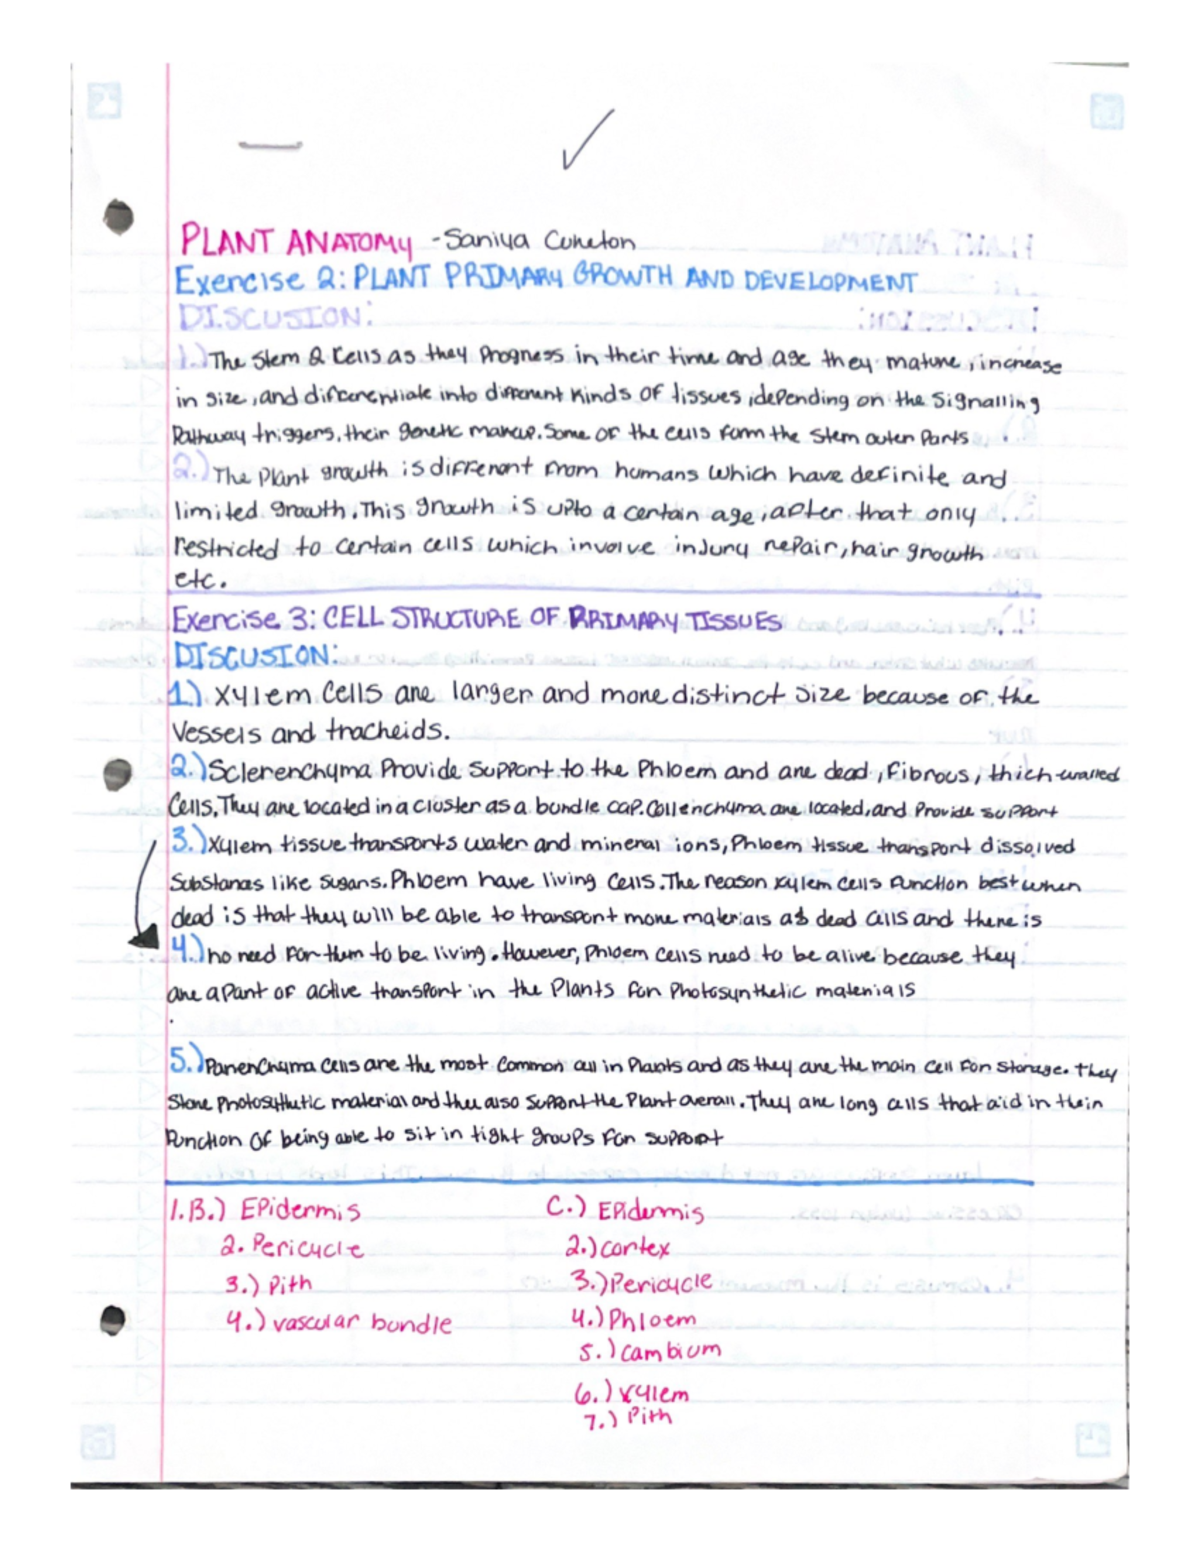 PLANT ANATOMY - Saniya
Exercise 2: PLANT PRIMARY GROWTH AND DEVELOPMENT
DISCUSION:
1.) The Stem 2 Cells as they Progress in their time and age they mature, increase
in size, and differentiate into different kinds of tissues, depending on the Signalling
Pathway triggers, their genetic makeup. Some of the cells form the stem outer Parts
2.) The Plant growth is different from humans which have definite and
limited growth. This growth is upto a certain age, after that only
restricted to certain cells which involve injury repair, hair growth
etc.
Exercise 3: CELL STRUCTURE OF PRIMARY TISSUES
DISCUSION:
1.) Xylem Cells are larger and more distinct size because of the
Vessels and tracheids.
2.) Sclerenchyma Provide Support to the Phloem and are dead, Fibrous, thich-walled
Cells. They are located in a cluster as a bundle cap. Collenchyma are located, and Provide support
3.) Xylem tissue transports water and mineral ions, Phloem tissue transport dissolved
Substances like sugars. Phloem have living Cells. The reason xylem cells function best when
dead is that they will be able to transport more materials as dead cells and there is
4.) no need for them to be living. However, Phloem Cells need to be alive because they
are a Part of active transport in the Plants for Photosynthetic materials
5.) Parenchyma Cells are the most Common cell in Plants and as they are the main Cell For Storage. They
Store and also Support the Plant overall. They are long cells that aid in their
Function Of being able to sit in tight groups For support
1.B.) EPidermis
2. Pericycle
3.) Pith
4.) vascular bundle
C.) EPidermis
2.) Cortex
3.) Pericycle
4.) Phloem
5.) Cambium
6.) xylem
7.) Pith